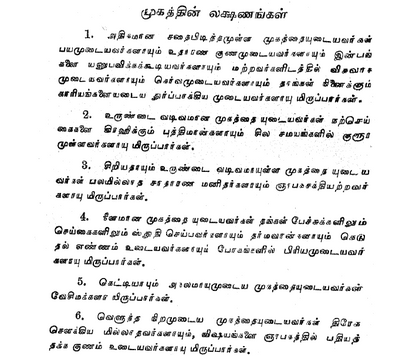 முகத்தின் லக்ஷணங்கள்
1. அதிகமான சதைபிடித்தமுள்ள முகத்தையுடையவர்கள்
பயமுடையவர்களாயும் உதாரண குணமுடையவர்களாயும் இன்பங்
களை யனுபவிக்கக்கூடியவர்களாயும் மற்றவர்களிடத்தில் விசுவாச
முடையவர்களாயும் செல்வமுடையவர்களாயும் தாங்கள் நினைக்கும்
காரியங்களையுடைய துர்ப்பாக்கிய முடையவர்களாயு மிருப்பார்கள்.
2. உருண்டை வடிவமான முகத்தை யுடையவர்கள் நற்செய்
கைகளை கிரஹிக்கும் புத்திமான்களாயும் சில சமயங்களில் குரூர
முள்ளவர்களாயு மிருப்பார்கள்.
3. சிறியதாயும் உருண்டை வடிவமாயுள்ள முகத்தை யுடைய
வர்கள் பலமில்லாத சாதாரண மனிதர்களாயும் ஞாபகசக்தியற்றவர்
களாயு மிருப்பார்கள்.
4. நீளமான முகத்தை யுடையவர்கள் தங்கள் பேச்சுக்களிலும்
செய்கைகளிலும் ஸ்துதி செய்பவர்களாயும் தர்மவான்களாயும் கெடு
தல் எண்ணம் உடையவர்களாயும் போகங்களில் பிரியமுடையவர்
களாயு மிருப்பார்கள்.
5. கெட்டியாயும் அகலமாயுமுடைய முகத்தையுடையவர்கள்
வேசிமக்களா யிருப்பார்கள்.
6. வெளுத்த நிறமுடைய முகத்தையுடையவர்கள் திரேக
சௌக்கிய மில்லாதவர்களாயும், விஷயங்களை ஞாபகத்தில் பதியத்
தக்க குணம் உடையவர்களாயு மிருப்பார்கள்.